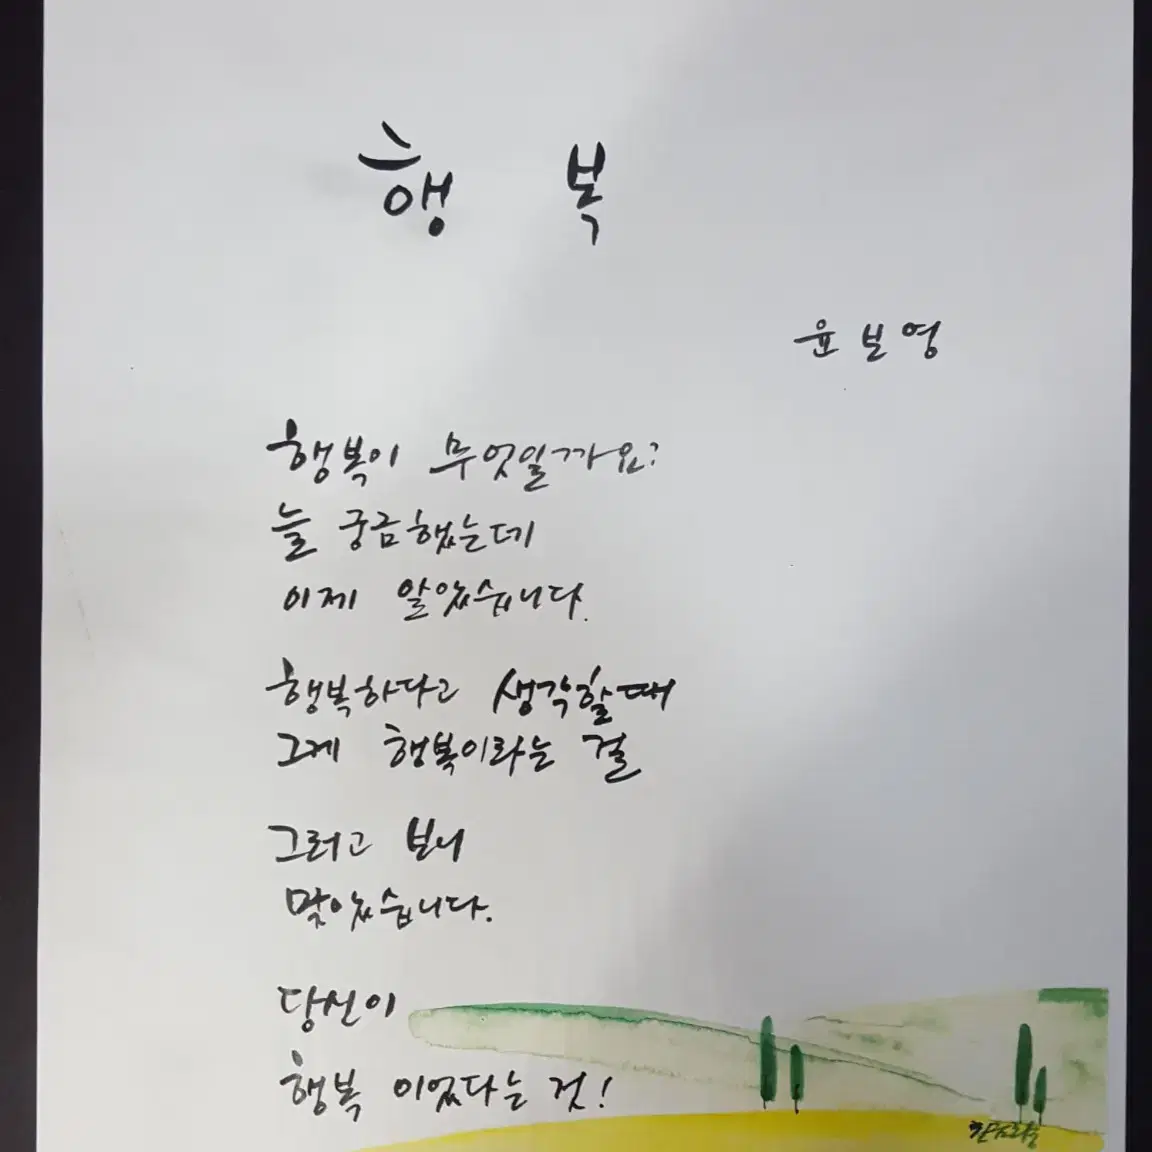 행 복
윤보영
행복이 무엇일까요?
늘 궁금했는데
이제 알았습니다.
행복하다고 생각할때
그게 행복이라는 걸
그러고 보니
맞았습니다.
당신이
행복 이었다는 것!